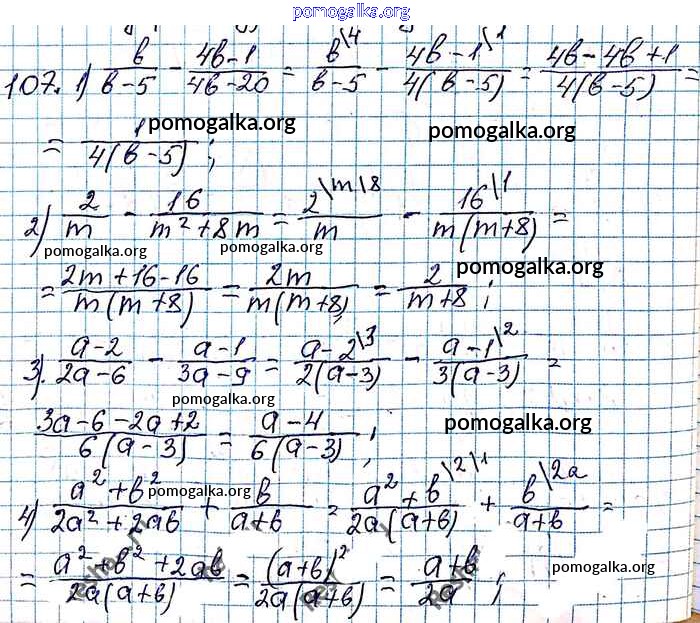 pomogalka.org
107. 1) в/(в-5) - (4в-1)/(4в-20) = в\4/(в-5) - (4в-1\1)/(4(в-5)) = (4в-4в+1)/(4(в-5)) =
= 1/(4(в-5)) ;
pomogalka.org pomogalka.org
2) 2/m - 16/(m²+8m) = 2\m\8/m - 16\1/(m(m+8)) =
pomogalka.org pomogalka.org pomogalka.org
= (2m+16-16)/(m(m+8)) = 2m/(m(m+8)) = 2/(m+8) ;
3). (a-2)/(2a-6) - (a-1)/(3a-9) = (a-2\3)/(2(a-3)) - (a-1\2)/(3(a-3)) =
pomogalka.org
(3a-6-2a+2)/(6(a-3)) = (a-4)/(6(a-3)) ;
pomogalka.org
4) (a²+в²)/(2a²+2aв) + в/(a+в) = (a²+в\2\1)/(2a(a+в)) + в\2a/(a+в) =
pomogalka.org
= (a²+в²+2aв)/(2a(a+в)) = (a+в)²/(2a(a+в)) = (a+в)/2a ;
pomogalka.org